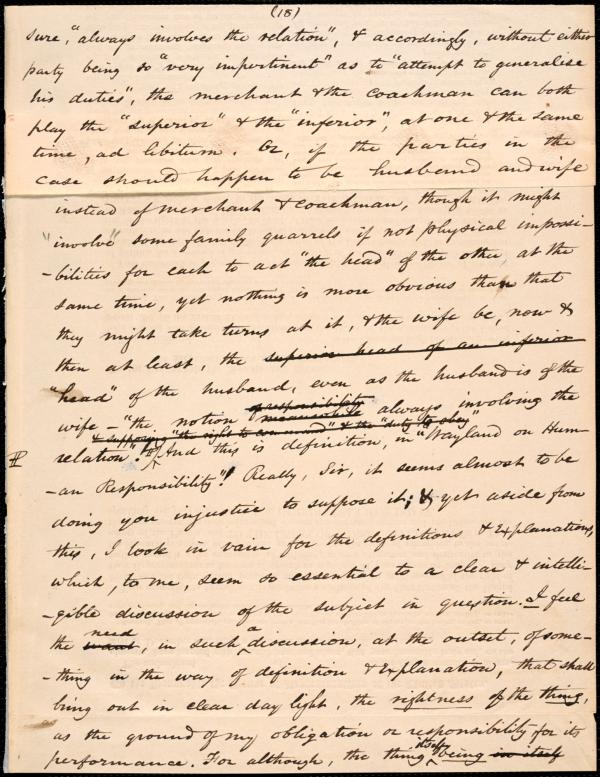 (18)
sure, "always involves the relation", & accordingly, without either
party being so "very impertinent" as to "attempt to generalise
his duties", the merchant & the coachman can both
play the "superior" & the "inferior", at one & the same
time, ad libitum. Or, if the parties in the
case should happen to be husband and wife
instead of merchant & coachman, though it might
"involve" some family quarrels if not physical impossi-
-bilities for each to act "the head" of the other at the
same time, yet nothing is more obvious than that
they might take turns at it, & the wife be, now &
then at least, the superior head of an inferior
"head" of the husband, even as the husband is of the
of responsibility
wife - "the notion always involving the
& supposing "the right to command" & the "duty to obey"
relation"! And this is definition, in "Wayland on Hum-
-an Responsibility"! Really, Sir, it seems almost to be
doing you injustice to suppose it; & yet aside from
this, I look in vain for the definitions & explanations,
which, to me, seem so essential to a clear & intelli-
-gible discussion of the subject in question. I feel
need
the want, in such a discussion, at the outset, of some-
-thing in the way of definition & explanation, that shall
bring out in clear day light, the rightness of the thing,
as the ground of my obligation or responsibility for its
itself
performance. For although, the thing being in itself